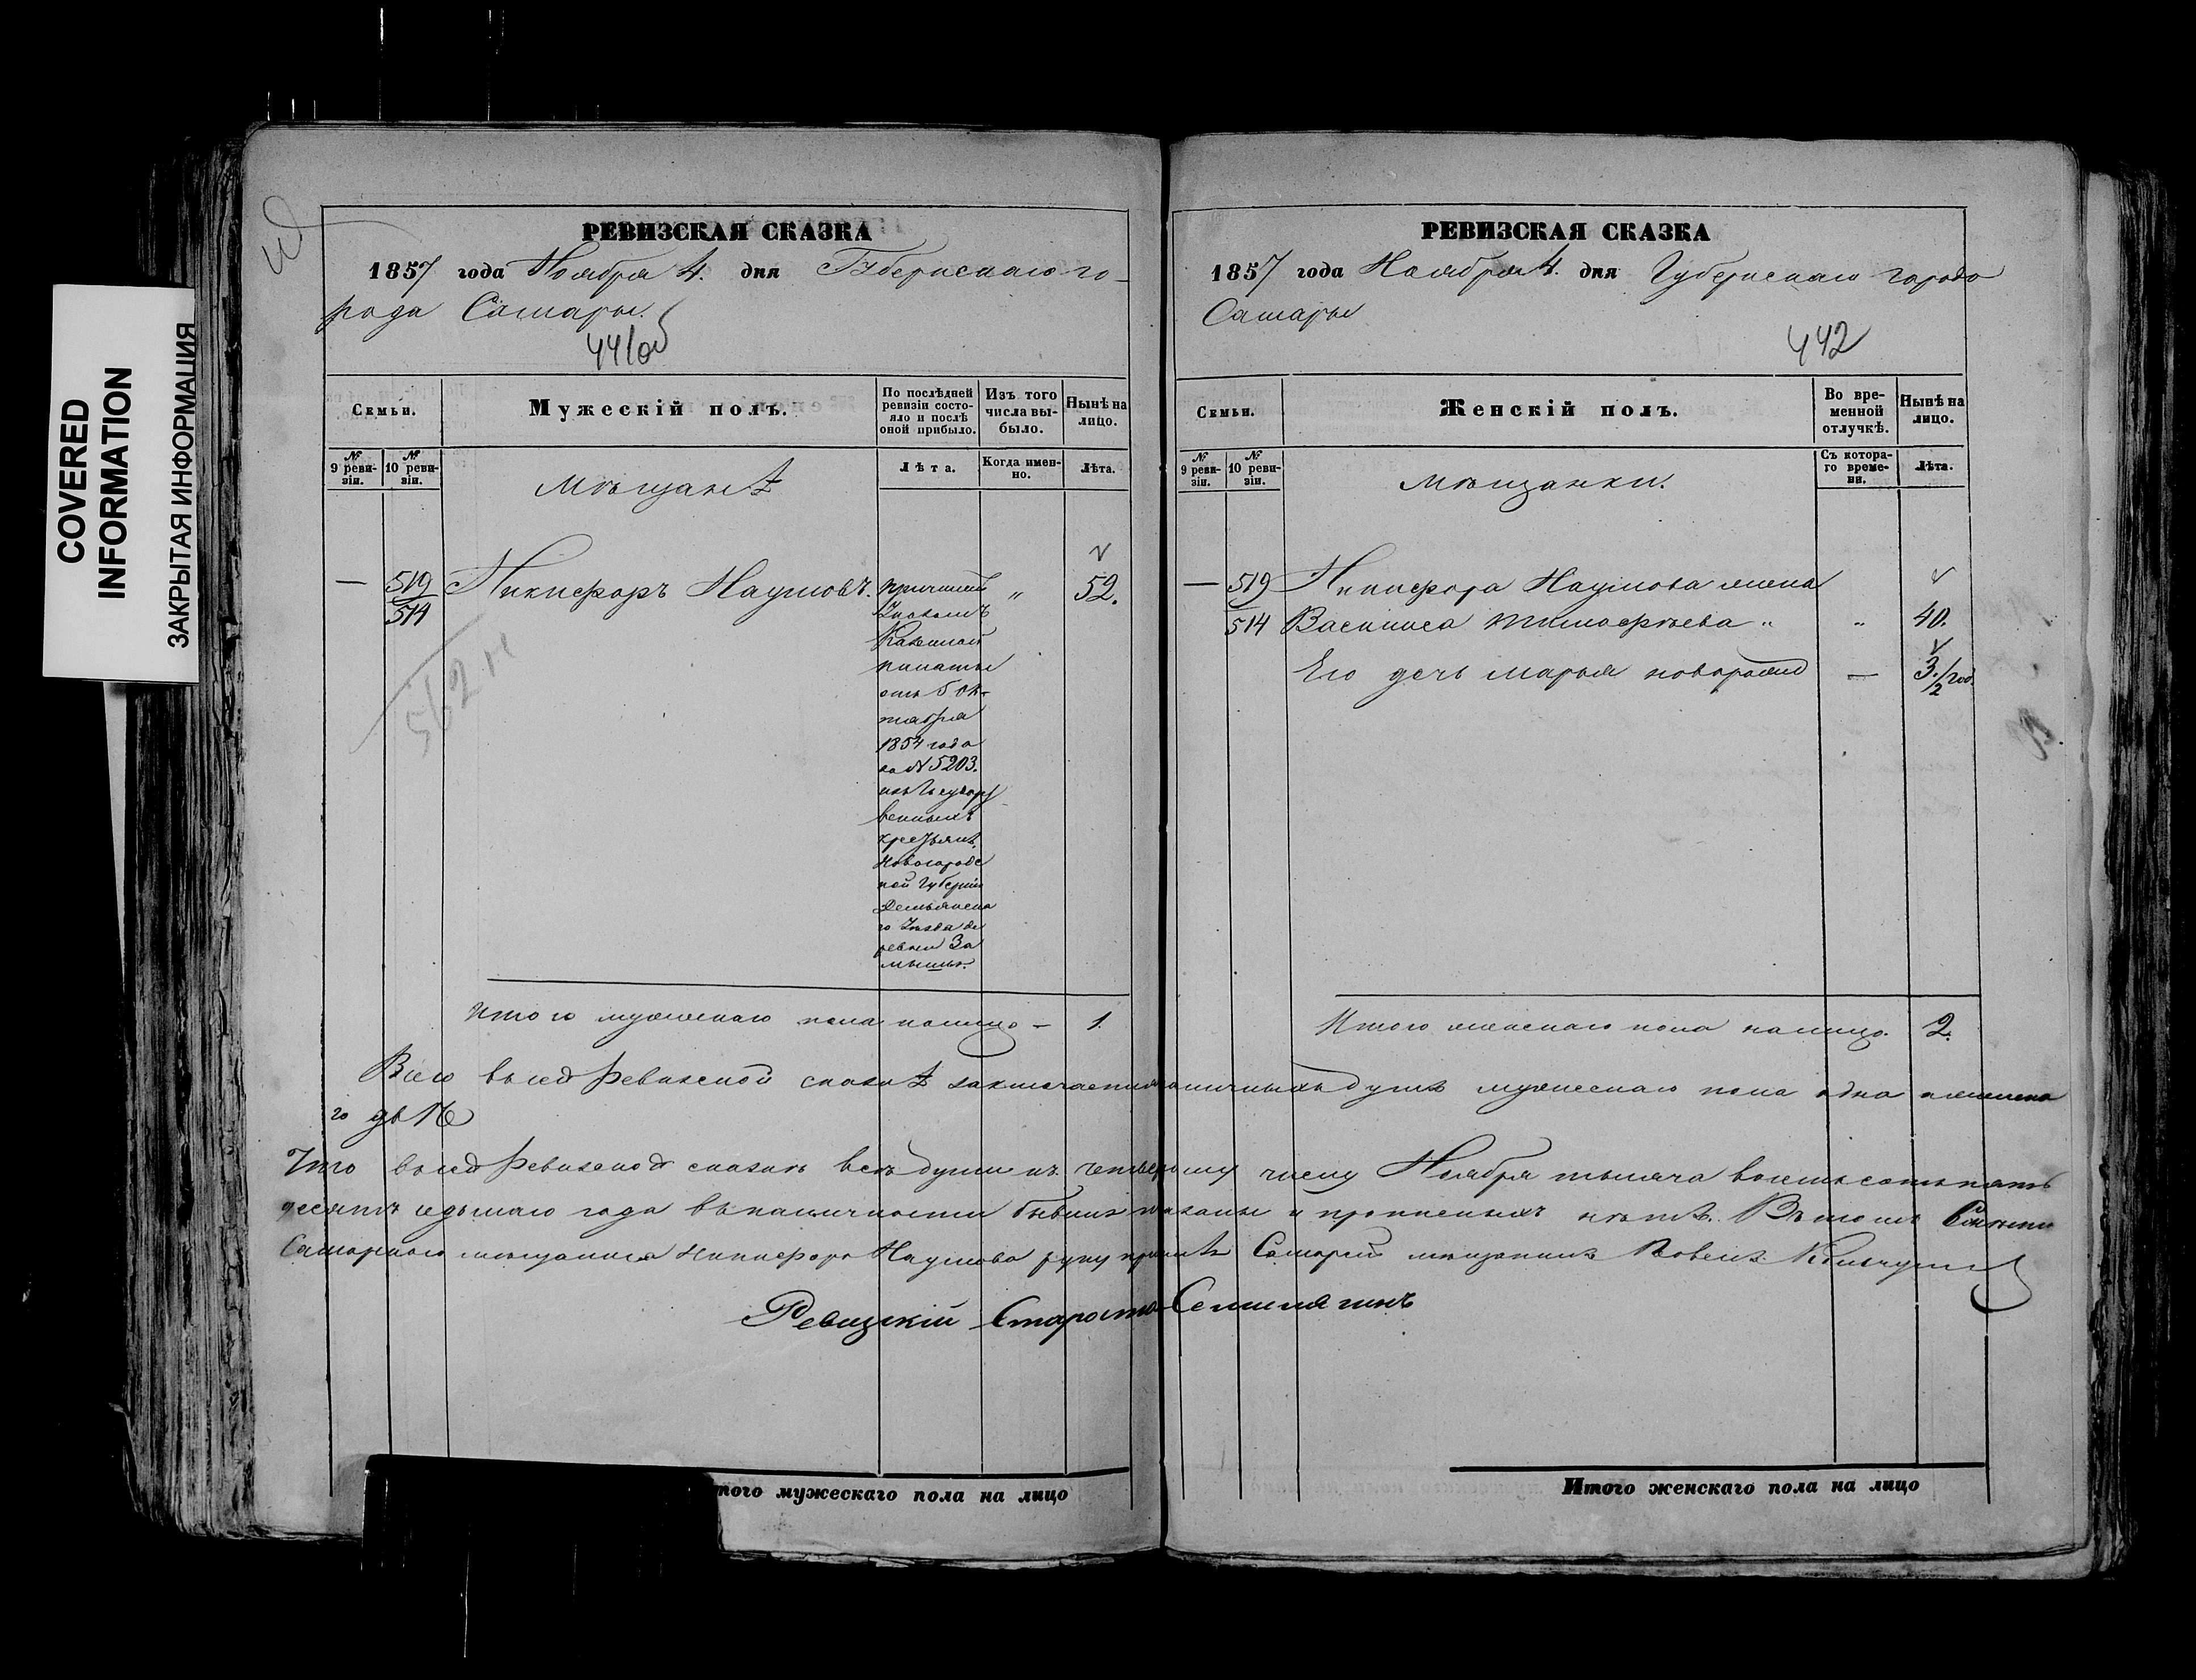 COVERED
INFORMATION
ЗАКРЫТАЯ ИНФОРМАЦИЯ
РЕВИЗСКАЯ СКАЗКА
1857 года Ноября 4. дня Губернскаго го-
рода Самары.
441об
Семьи.
Мужескій полъ.
По послѣдней
ревизіи состо-
яло и послѣ
оной прибыло.
Изъ того
числа вы-
было.
Нынѣ на
лицо.
№
9 реви-
зіи.
№
10 реви-
зіи.
Мѣщанѣ
Лѣта.
Когда имен-
но.
Лѣта.
— 519 Никифоръ Наумовъ. причисленъ „ 52.
514
Указомъ
Казенной
палаты
отъ 5 ок-
тября
1854 года
за № 5203.
изъ Государст
венныхъ
крестьянъ,
Новогородс
кой Губерніи
Демьянска
го Уѣзда де
ревни За
562 м
Итого мужескаго пола налицо — 1.
РЕВИЗСКАЯ СКАЗКА
1857 года Ноября 4. дня Губернскаго города
Самары
442
Семьи.
Женскій полъ.
Во вре-
менной
отлучкѣ.
Нынѣ на
лицо.
№
9 реви-
зіи.
№
10 реви-
зіи.
Мѣщанки.
Съ котора-
го време-
ни.
Лѣта.
— 519 Никифора Наумова жена
514 Василиса Тимофѣева „ „ 40.
Его дочь Марья новорожд — 3 1/2 год.
Итого женскаго пола налицо. 2.
Всего въ сей ревизской сказкѣ заключается наличныхъ душъ мужескаго пола одна а женска
го двѣ
Что въ сей ревизской сказкѣ всѣ души къ четвертому числу Ноября тысяча восемьсотъ пять
десятъ седьмаго года въ наличности бывшіе показаны и прописныхъ нѣтъ. Въ томъ
Самарскаго мѣщанина Никифора Наумова руку приложилъ Самарскій мѣщанинъ Павелъ
Ревизскій Староста
Итого мужескаго пола на лицо
Итого женскаго пола на лицо